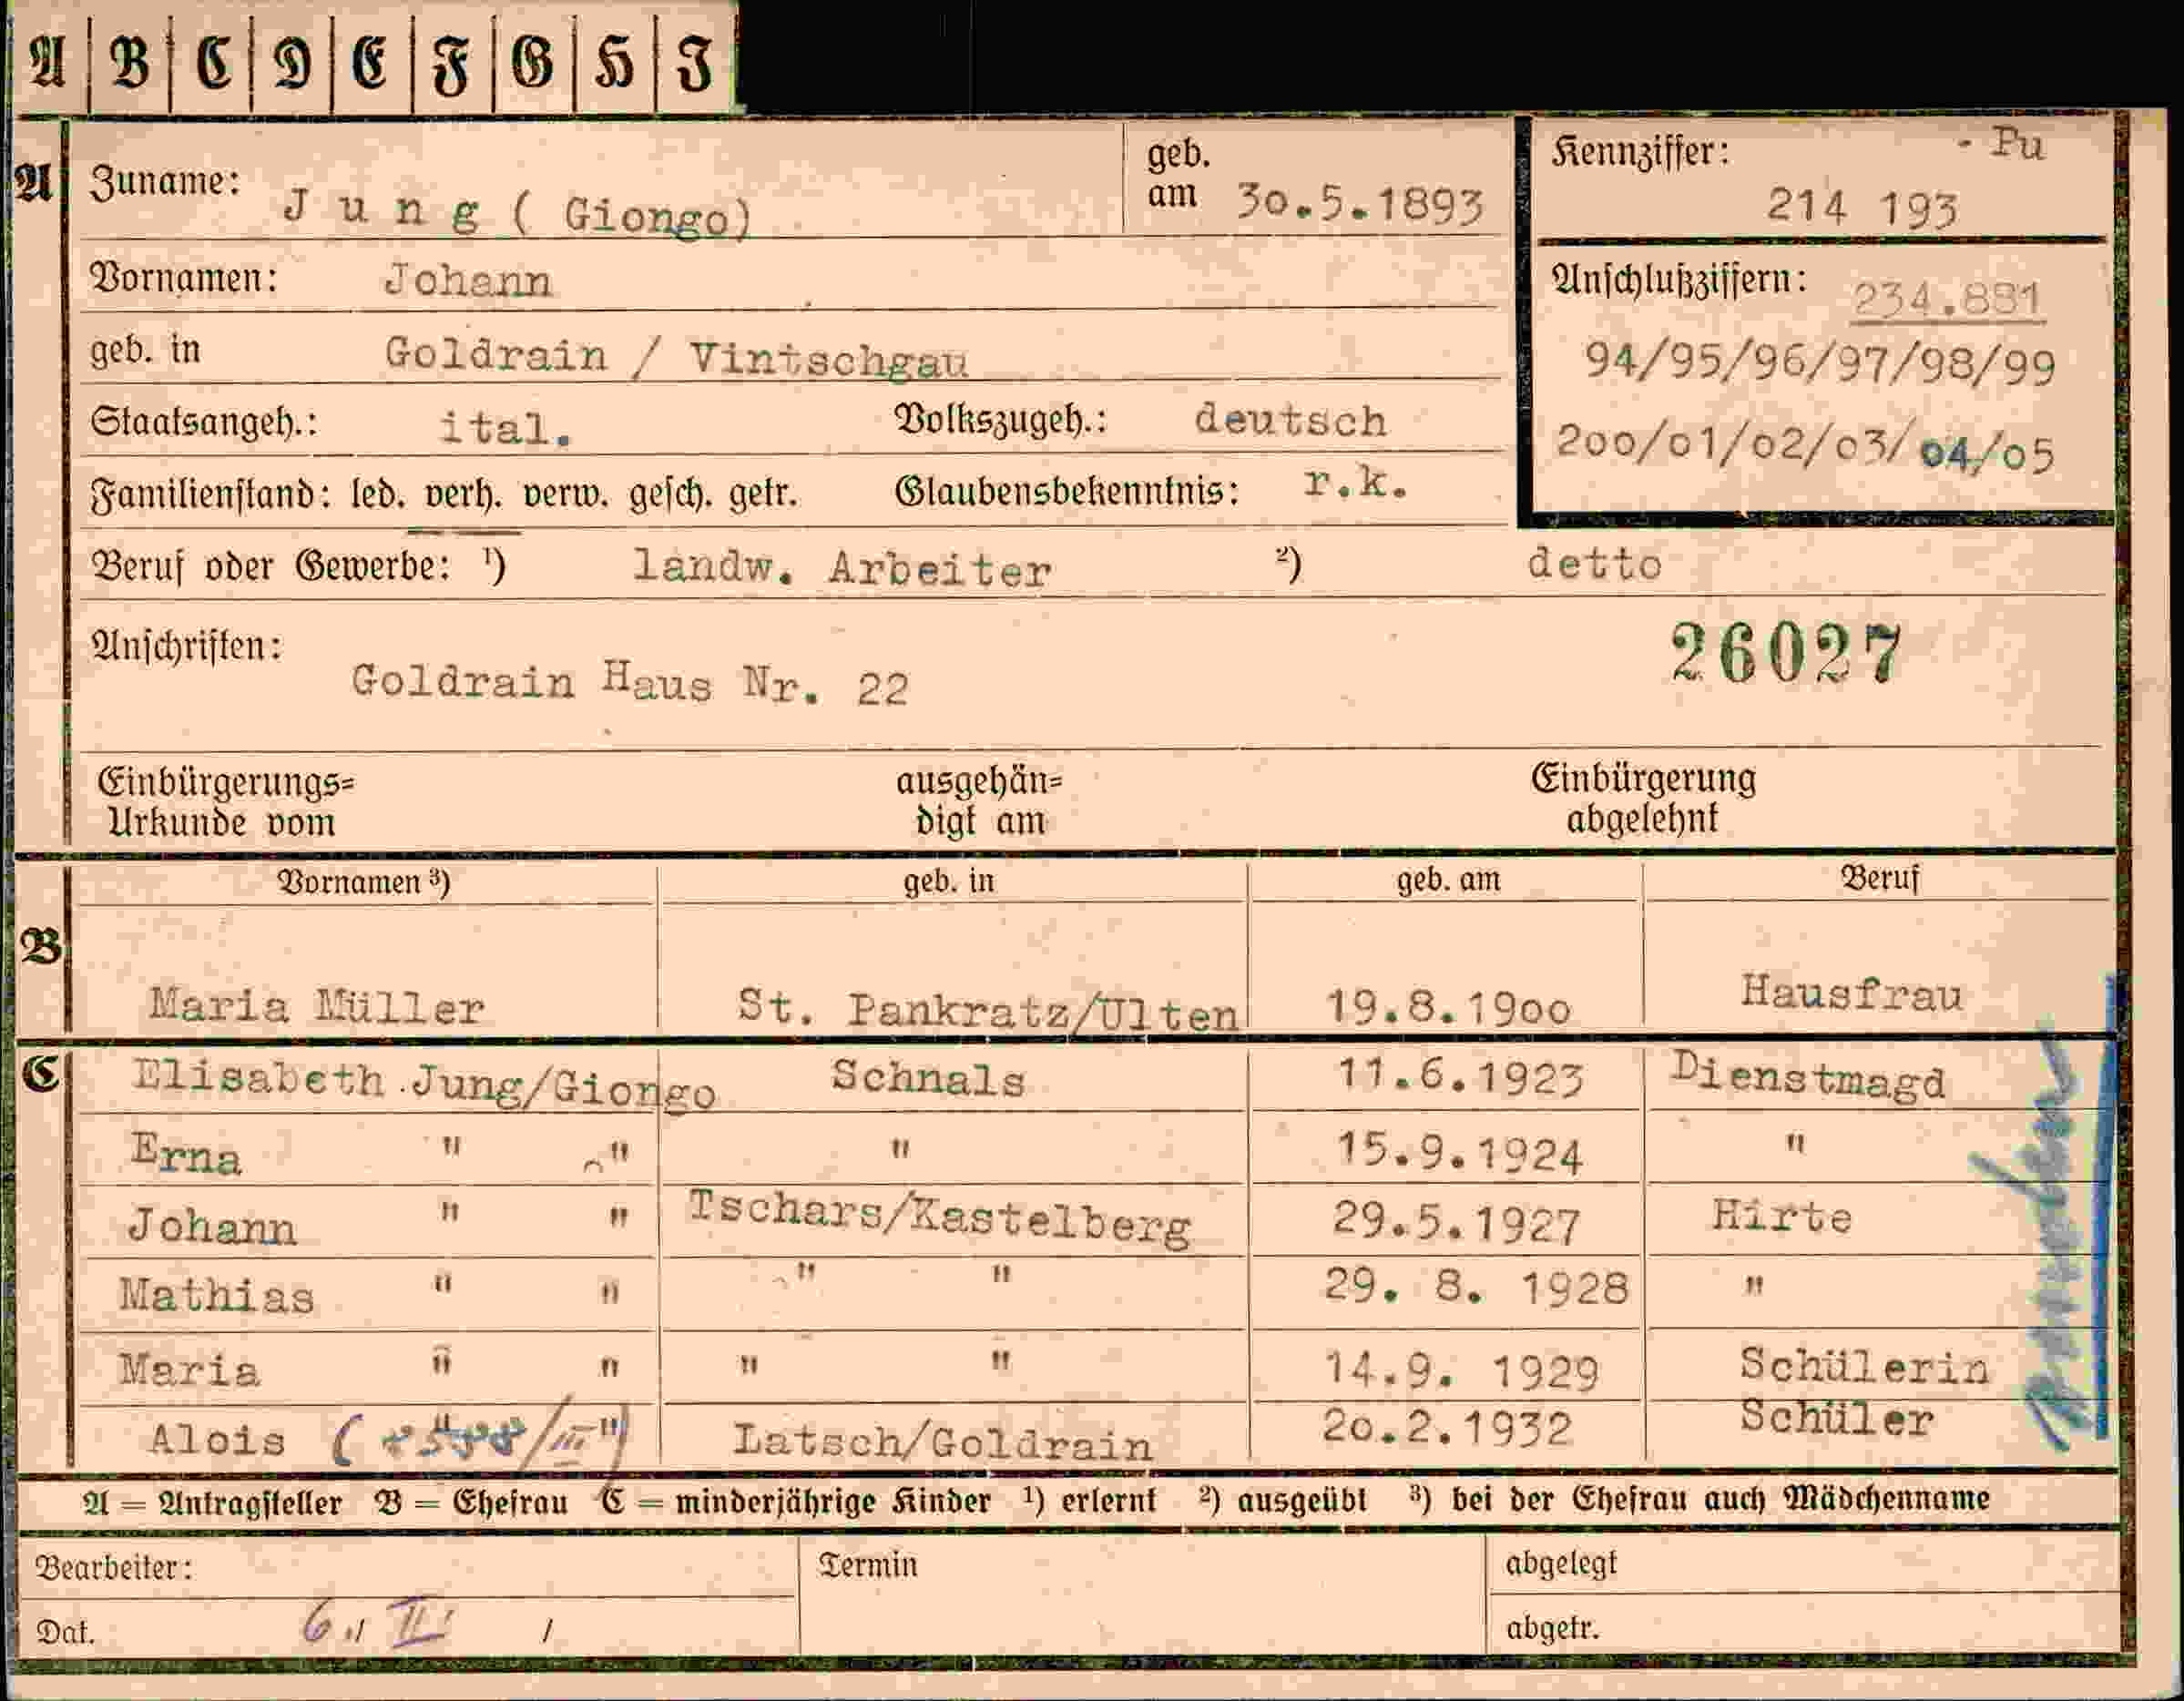 A B C D E F G H J
A Zuname: J u n g ( Giongo) geb. am 30.5.1893
Kennziffer: - Pu
214 193
Vornamen: Johann
Anschlußziffern: 234.881
geb. in Goldrain / Vintschgau
94/95/96/97/98/99
Staatsangeh.: ital. Volkszugeh.: deutsch
200/01/02/03/04/05
Familienstand: led. verh. verw. gesch. getr. Glaubensbekenntnis: r.k.
Beruf oder Gewerbe: ¹) landw. Arbeiter ²) detto
Anschriften: 26027
Goldrain Haus Nr. 22
Einbürgerungs= ausgehän= Einbürgerung
Urkunde vom digt am abgelehnt
Vornamen ³) geb. in geb. am Beruf
B
Maria Müller St. Pankratz/Ulten 19.8.1900 Hausfrau
C Elisabeth Jung/Giongo Schnals 11.6.1923 Dienstmagd
Erna " " " 15.9.1924 "
Johann " " Tschars/Kastelberg 29.5.1927 Hirte
Mathias " " " " 29. 8. 1928 "
Maria " " " " 14.9. 1929 Schülerin
Alois Latsch/Goldrain 20.2.1932 Schüler
A = Antragsteller B = Ehefrau C = minderjährige Kinder ¹) erlernt ²) ausgeübt ³) bei der Ehefrau auch Mädchenname
Bearbeiter: Termin abgelegt
Dat. 6./ II. / abgetr.